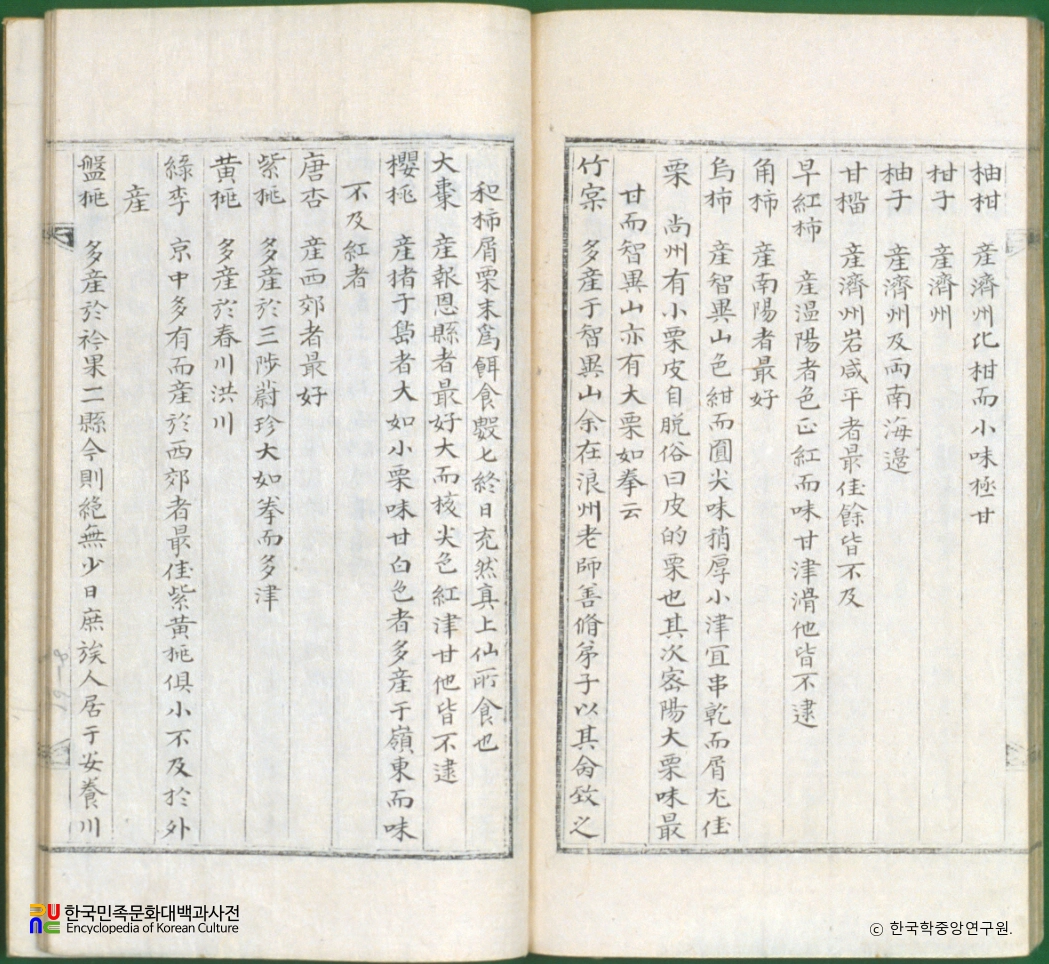 柚柑 産濟州比柑而小味極甘
柑子 産濟州
柚子 産濟州及両南海邊
甘榴 産濟州岩咸平者最佳餘皆不及
早紅柿 産溫陽者色正紅而味甘津滑他皆不逮
角柿 産南陽者最好
烏柿 産智異山色紺而圓尖味稍厚小津冝串乾而屑尤佳
栗 尚州有小栗皮自脱俗曰皮的栗也其次宻陽大栗味最
甘而智異山亦有大栗如拳云
竹 多産于智異山余在浪州老師善脩弟子以其命致之
和柿屑栗末爲餌食數匕終日充然真上仙所食也
大棗 産報恩縣者最好大而核尖色紅津甘他皆不逮
櫻桃 産猪于島者大如小栗味甘白色者多産于嶺東而味
不及紅者
唐杏 産西郊者最好
紫桃 多産於三陟蔚珍大如拳而多津
黄桃 多産於春川洪川
綠李 京中多有而産於西郊者最佳紫黄桃俱小不及於外
産
盤桃 多産於衿果二縣今則絶無少日庶族人居于安養川
한국민족문화대백과사전
Encyclopedia of Korean Culture
© 한국학중앙연구원.